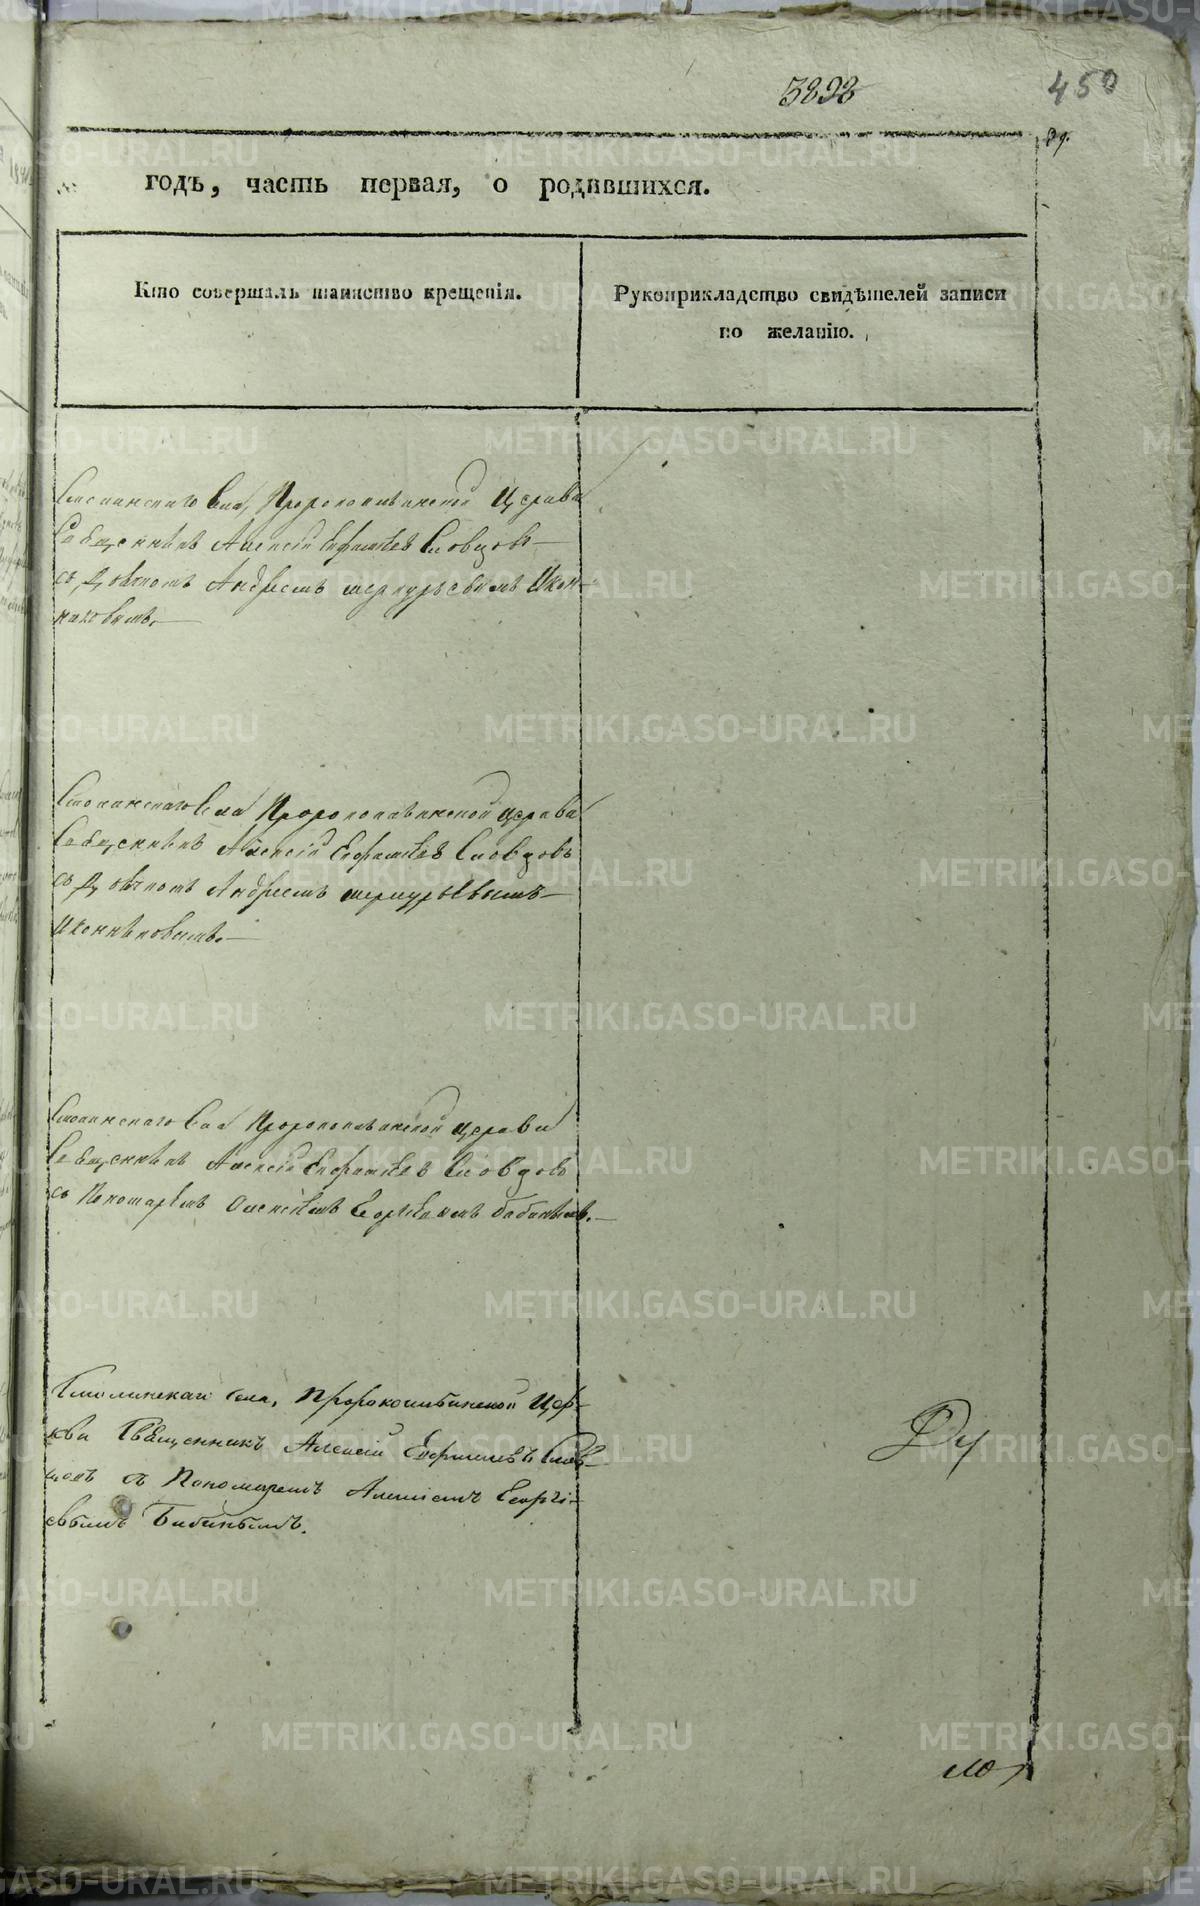 450
89.
годъ, часть первая, о родившихся.
Кто совершалъ таинство крещенія.
Рукоприкладство свидѣтелей записи
по желанію.
Смолинскаго села, Пророкоильинской Церкви
Священникъ Алексій Ефимовъ Словцовъ
съ Дьячкомъ Андреемъ Меркурьевымъ Икон-
никовымъ.
Смолинскаго села Пророкоильинской Церкви
Священникъ Алексій Ефимовъ Словцовъ
съ Дьячкомъ Андреемъ Меркурьевымъ
Иконниковымъ.
Смолинскаго села Пророкоильинской Церкви
Священникъ Алексій Ефимовъ Словцовъ
съ Пономаремъ Алексіемъ Георгіевымъ Бабинымъ.
Смолинскаго села, Пророкоильинской Цер-
кви Священникъ Алексій Ефимовъ Слов-
цовъ съ Пономаремъ Алексіемъ Георгі-
евымъ Бабинымъ.
METRIKI.GASO-URAL.RU